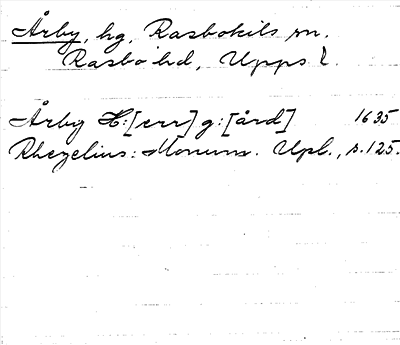 Årby, hg, Rasbokils sn.
Rasbo hd, Upps l.
Årby H:[err] g:[ård] 1635
Rhezelius: Monum. Upl., s. 125.